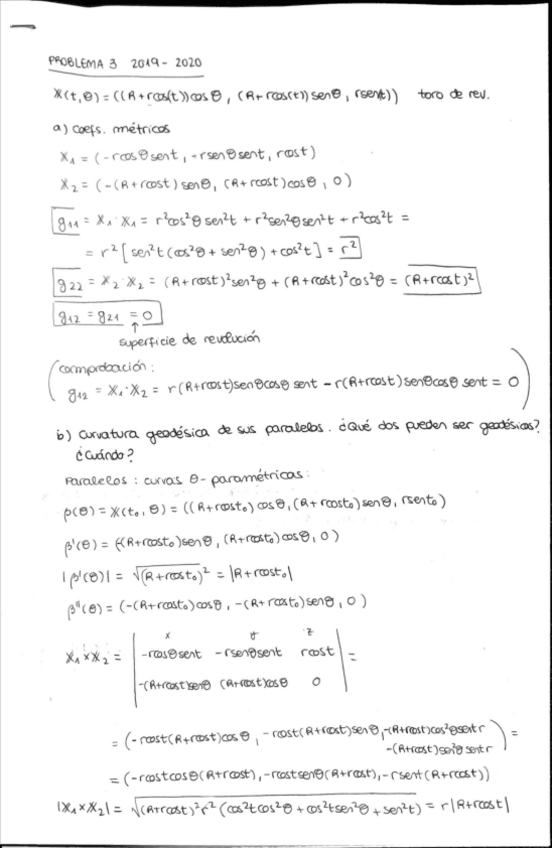 PROBLEMA 3 2019-2020
X(t,θ) = ((R+rcos(t))cosθ, (R+rcos(t))senθ, rsen(t)) toro de rev.
a) coefs. métricos
X₁ = (-rcosθsent, -rsenθsent, rcost)
X₂ = (-(R+rcost)senθ, (R+rcost)cosθ, 0)
g₁₁ = X₁·X₁ = r²cos²θsen²t + r²sen²θsen²t + r²cos²t =
= r²[sen²t(cos²θ+sen²θ)+cos²t] = r²
g₂₂ = X₂·X₂ = (R+rcost)²sen²θ + (R+rcost)²cos²θ = (R+rcost)²
g₁₂ = g₂₁ = 0
↑
superficie de revolución
(comprobación:
g₁₂ = X₁·X₂ = r(R+rcost)senθcosθ sent - r(R+rcost)senθcosθ sent = 0)
b) Curvatura geodésica de sus paralelos. ¿Qué dos pueden ser geodésicas?
¿Cuándo?
Paralelos: curvas θ-paramétricas:
β(θ) = X(t₀,θ) = ((R+rcost₀)cosθ, (R+rcost₀)senθ, rsent₀)
β'(θ) = (-(R+rcost₀)senθ, (R+rcost₀)cosθ, 0)
|β'(θ)| = √(R+rcost₀)² = |R+rcost₀|
β''(θ) = (-(R+rcost₀)cosθ, -(R+rcost₀)senθ, 0)
x y z
X₁×X₂ = | -rcosθsent -rsenθsent rcost | =
-(R+rcost)senθ (R+rcost)cosθ 0
= (-rcost(R+rcost)cosθ, -rcost(R+rcost)senθ, -(R+rcost)cos²θsent r
-(R+rcost)sen²θ sent r) =
= (-rcostcosθ(R+rcost), -rcostsenθ(R+rcost), -rsent(R+rcost))
|X₁×X₂| = √(R+rcost)²r²(cos²tcos²θ + cos²tsen²θ + sen²t) = r|R+rcost|